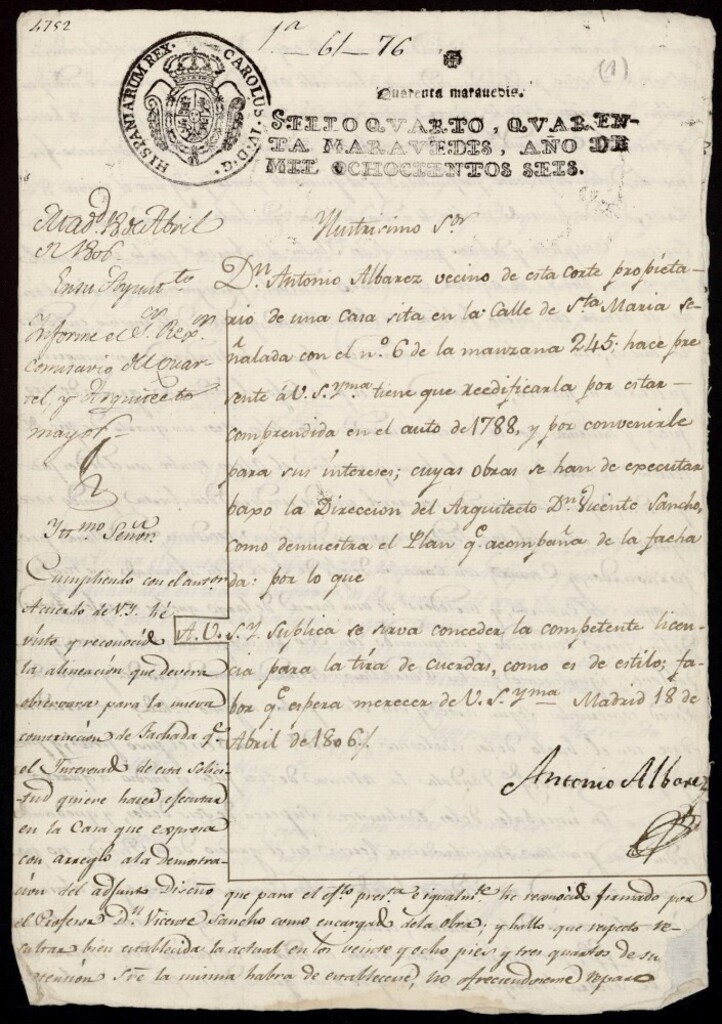 4752
1ª 61 76
(1)
HISPANIARUM REX. CAROLUS IV D. G.
Quarenta maravedis.
SELLO QVARTO, QVAREN-
TA MARAVEDIS, AÑO DE
MIL OCHOCIENTOS SEIS.
Madd 18 de Abril
de 1806
En su Ayuntto
Informe el Sr. Rexr
Comisario del Quar-
tel, y Arquitecto
mayor
Ylustrisimo Sor
Dn. Antonio Albarez vecino de esta Corte propieta-
rio de una Casa sita en la Calle de Sta Maria se-
ñalada con el nº 6 de la manzana 245; hace pre
sente á V. S. Yma tiene que reedificarla por estar
comprendida en el auto de 1788, y por convenirle
para sus intereses; cuyas obras se han de executar
baxo la Direccion del Arquitecto Dn. Vicente Sancho,
como demuestra el Plan qe. acompaña de la facha
da: por lo que
A. V. S. Y. suplica se sirva conceder la competente licen
cia para la tira de cuerdas, como es de estilo; fa-
bor qe espera merecer de V. S. Yma Madrid 18 de
Abril de 1806./.
Antonio Albarez
Ytrmo Señor
Cumpliendo con el antor
Acuerdo de V. Y. hé
visto y reconocido
la alineacion que devera
observarse para la nueva
construccion de Fachada qe
el Interesado de esta Solici-
tud quiere hacer ejecutar
en la Casa que expresa
con arreglo a la demostra-
cion del adjunto Diseño que para el efto presta e igualmte hé reconocido firmado por
el Profesor Dn. Vicente Sancho como encargado de la obra; y hallo que respecto re-
sultar bien establecida la actual en los veinte y ocho pies y tres quartos de su
estension sre la misma habra de establecerse, no ofreciendoseme reparo